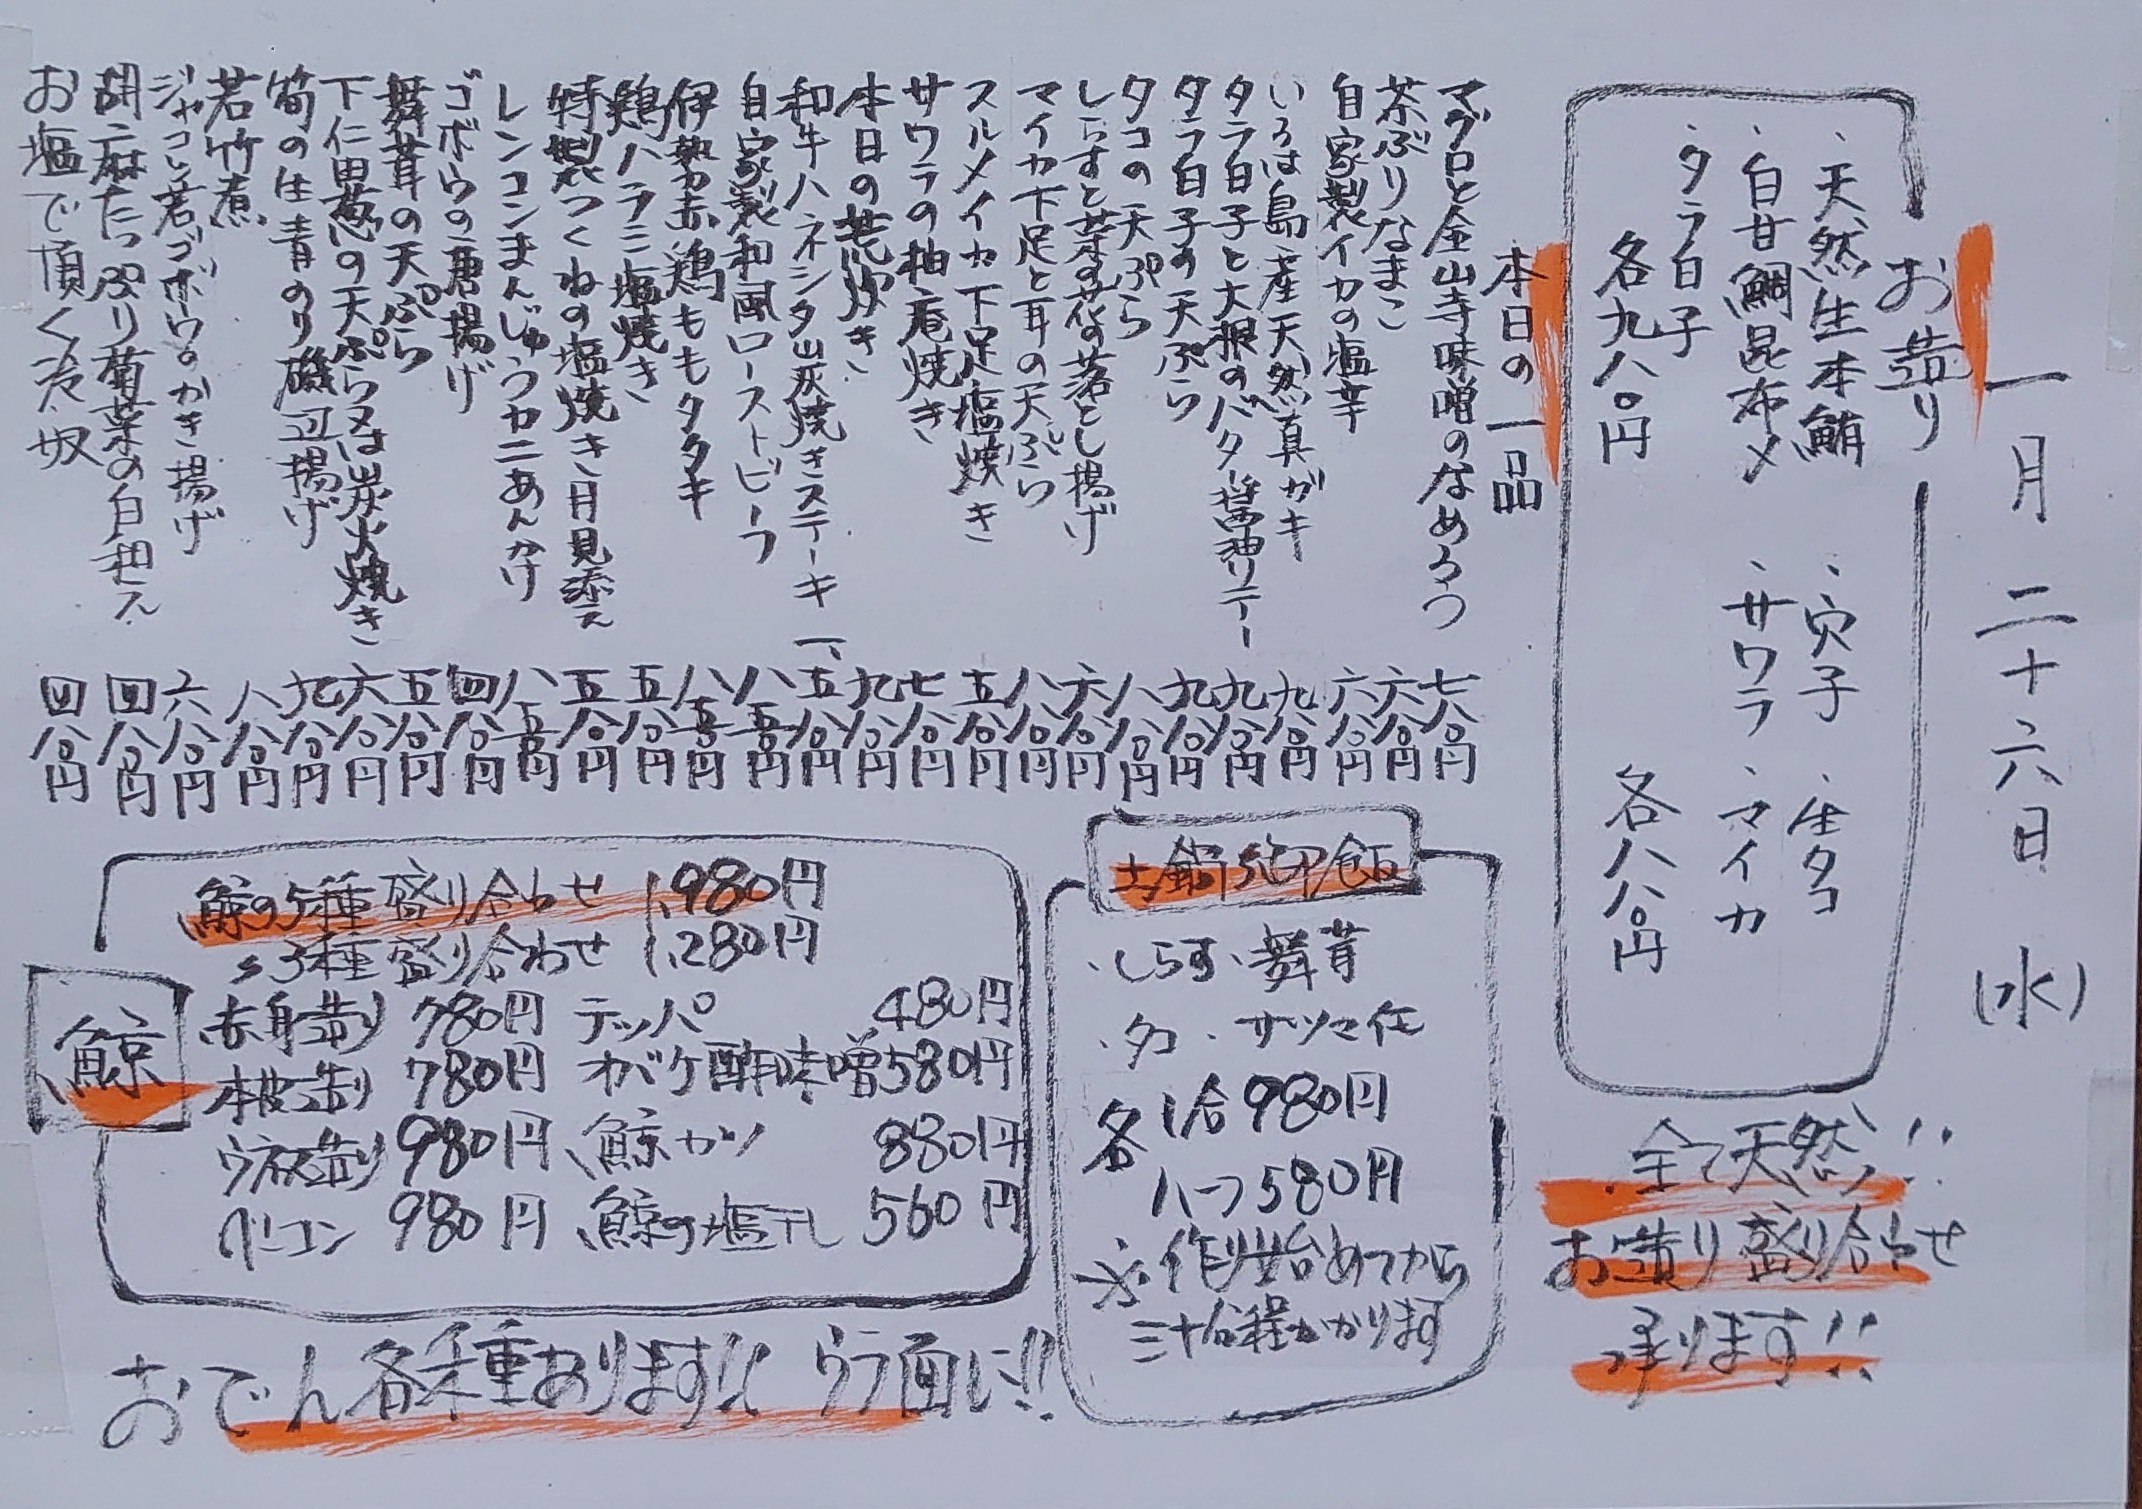 一月二十六日(水)
お造り
・天然生本鮪 ・穴子 ・生タコ
・白甘鯛昆布〆 ・サワラ ・マイカ
・タラ白子
各九八〇円 各八八〇円
全て天然!!
お造り盛り合わせ
承ります!!
本日の一品
マグロと金山寺味噌のなめろう 七八〇円
茶ぶりなまこ 六八〇円
自家製イカの塩辛 六八〇円
いろは島産天然真ガキ 九八〇円
タラ白子と大根のバター醤油ソテー 九八〇円
タラ白子の天ぷら 九八〇円
タコの天ぷら 八八〇円
しらすと菜の花の落とし揚げ 六八〇円
マイカ下足と耳の天ぷら 八八〇円
スルメイカ下足塩焼き 五八〇円
サワラの柚庵焼き 七八〇円
本日の荒炊き 九八〇円
和牛ハネシタ炭焼きステーキ 一、五八〇円
自家製和風ローストビーフ 八五〇円
伊勢赤鶏ももタタキ 八五〇円
鶏ハラミ塩焼き 五八〇円
特製つくねの塩焼き月見添え 五八〇円
レンコンまんじゅうカニあんかけ 八五〇円
ゴボウの唐揚げ 四八〇円
舞茸の天ぷら 五八〇円
下仁田葱の天ぷら又は炭火焼き 六八〇円
筍の生青のり磯辺揚げ 九八〇円
若竹煮 八八〇円
ジャコと若ゴボウのかき揚げ 六八〇円
胡麻たっぷり菊菜の白和え 四八〇円
お塩で頂く冷奴 四八〇円
土鍋炊き飯
・しらす ・舞茸
・タコ ・サツマ芋
各 1合980円
ハーフ580円
※作り始めてから
三十分程かかります
鯨
鯨の5種盛り合わせ 1,980円
〃3種盛り合わせ 1,280円
赤身造り 780円 テッパ 480円
本皮造り 780円 オバケ酢味噌580円
ウネス造り 980円 鯨カツ 880円
ベーコン 980円 鯨の塩干し 560円
おでん各種あります!! ウラ面に!!